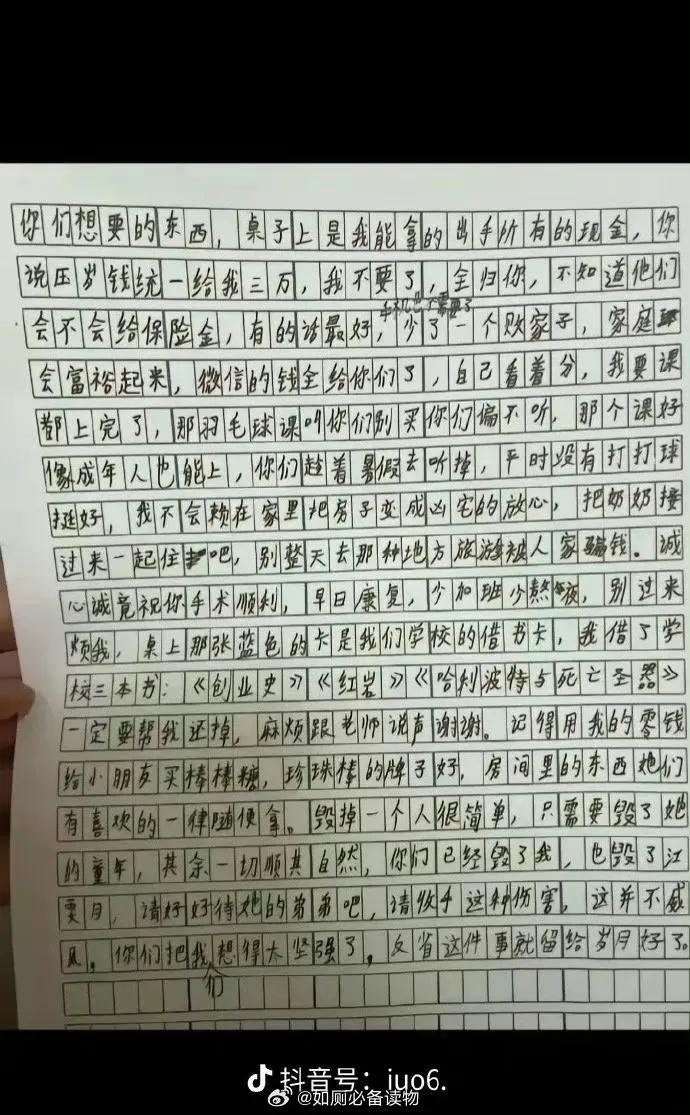 你们想要的东西，桌子上是我能拿的出手所有的现金，你
说压岁钱统一给我三万，我不要了，全归你，不知道他们
手机也不需要了
会不会给保险金，有的话最好，少了一个败家子，家庭
会富裕起来，微信的钱全给你们了，自己看着分，我要课
都上完了，那羽毛球课叫你们别买你们偏不听，那个课好
像成年人也能上，你们趁着暑假去听掉，平时没有打打球
挺好，我不会赖在家里把房子变成凶宅的放心，把奶奶接
过来一起住吧，别整天去那种地方旅游被人家骗钱。诚
心诚竟祝你手术顺利，早日康复，少加班少熬夜，别过来
烦我，桌上那张蓝色的卡是我们学校的借书卡，我借了学
校三本书：《创业史》《红岩》《哈利波特与死亡圣器》
一定要帮我还掉，麻烦跟老师说声谢谢。记得用我的零钱
给小朋友买棒棒糖，珍珠棒的牌子好，房间里的东西她们
有喜欢的一律随便拿。毁掉一个人很简单，只需要毁了她
的童年，其余一切顺其自然，你们已经毁了我，也毁了江
要月，请好好待她的弟弟吧，请收手这种伤害，这并不威
风，你们把我们想得太坚强了，反省这件事就留给岁月好了。
抖音号：iuo6.
@如厕必备读物